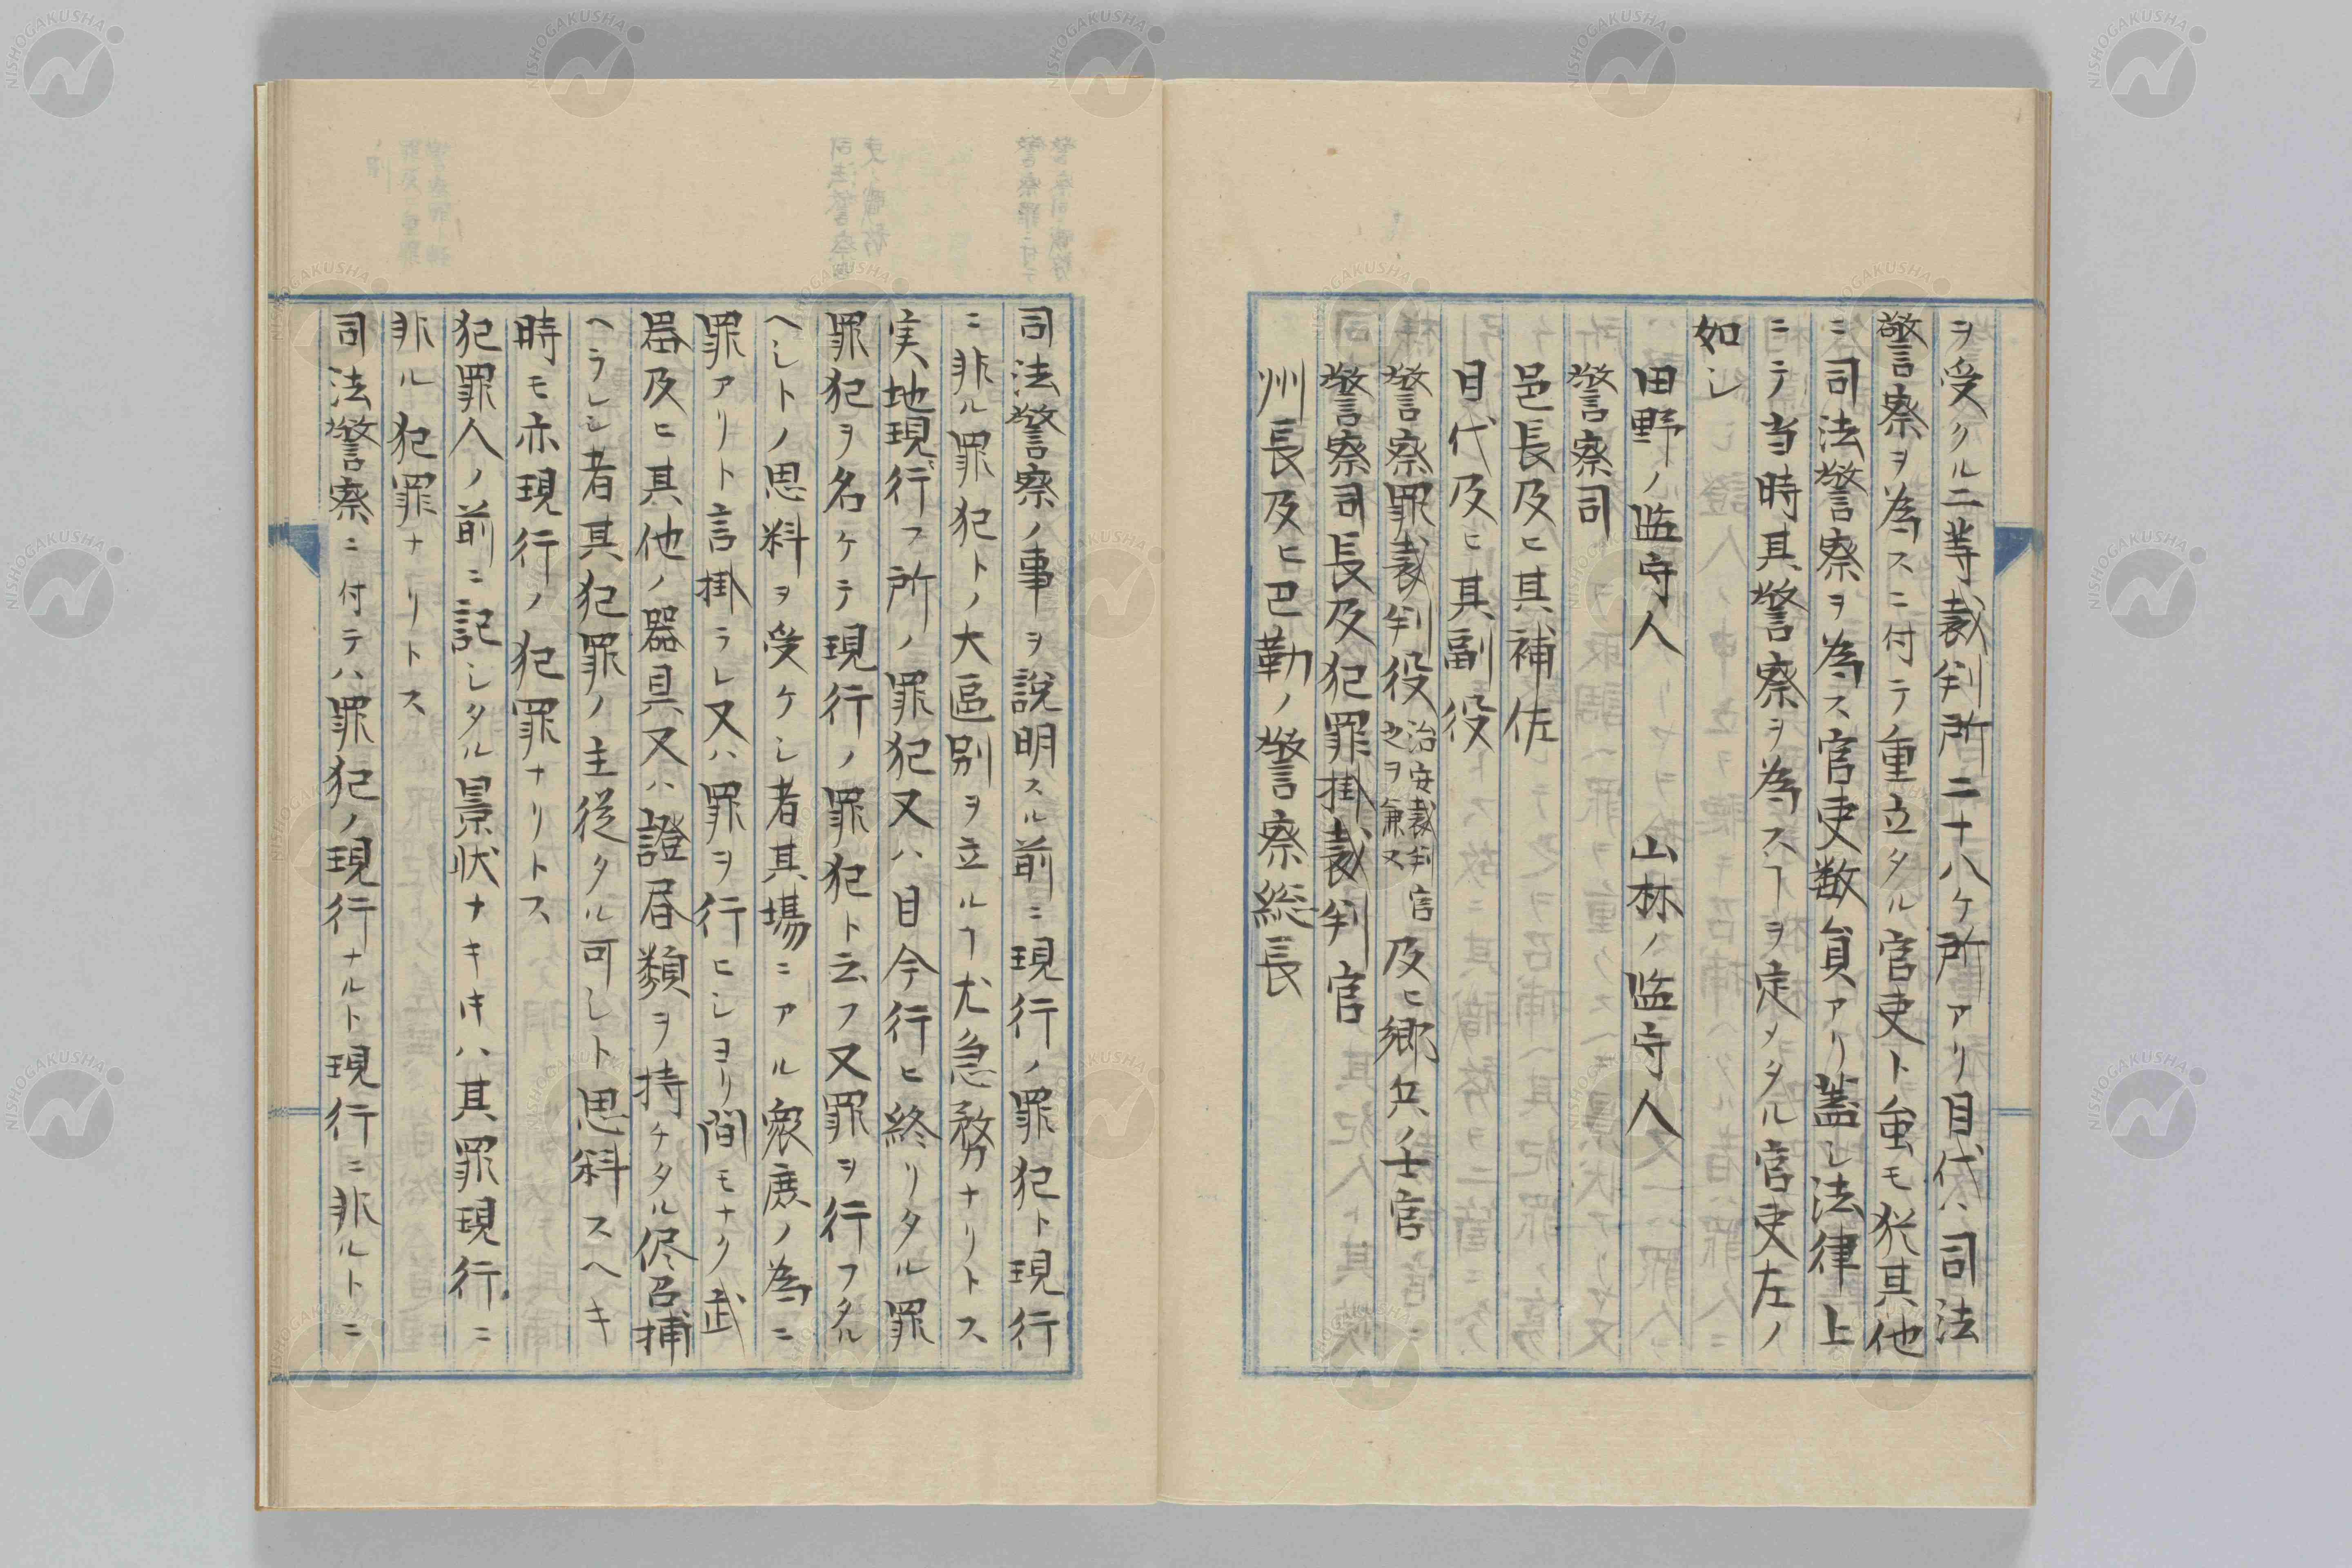 ヲ受クル二等裁判所二十八ケ所アリ目代ハ司法
警察ヲ為スニ付テ重立タル官吏ト虽モ犹其他
ニ司法警察ヲ為ス官吏数員アリ蓋シ法律上
ニテ当時其警察ヲ為スヿヲ定メタル官吏左ノ
如シ
田野ノ监守人 山林ノ监守人
警察司
邑長及ヒ其補佐
目代及ヒ其副役
警察罪裁判役治安裁判官之ヲ兼又及ヒ郷兵ノ士官
警察司長及犯罪掛裁判官
州長及ヒ巴勒ノ警察総長
司法警察ノ事ヲ說明スル前ニ現行ノ罪犯ト現行
ニ非ル罪犯トノ大區別ヲ立ルヿ尤急務ナリトス
実地現行フ所ノ罪犯又ハ目今行ヒ終リタル罪
罪犯ヲ名ケテ現行ノ罪犯ト云フ又罪ヲ行フタル
ヘシトノ思料ヲ受ケシ者其場ニアル衆庻ノ為ニ
罪アリト言掛ラレ又ハ罪ヲ行ヒシヨリ間モナク武
噐及ヒ其他ノ器具又ハ證㞐類ヲ持チタル侭召捕
ヘラレシ者其犯罪ノ主從タル可シト思料スヘキ
時モ亦現行ノ犯罪ナリトス
犯罪人ノ前ニ記シタル景状ナキ𪜈ハ其罪現行ニ
非ル犯罪ナリトス
司法警察ニ付テハ罪犯ノ現行ナルト現行ニ非ルトニ
NISHOGAKUSHA